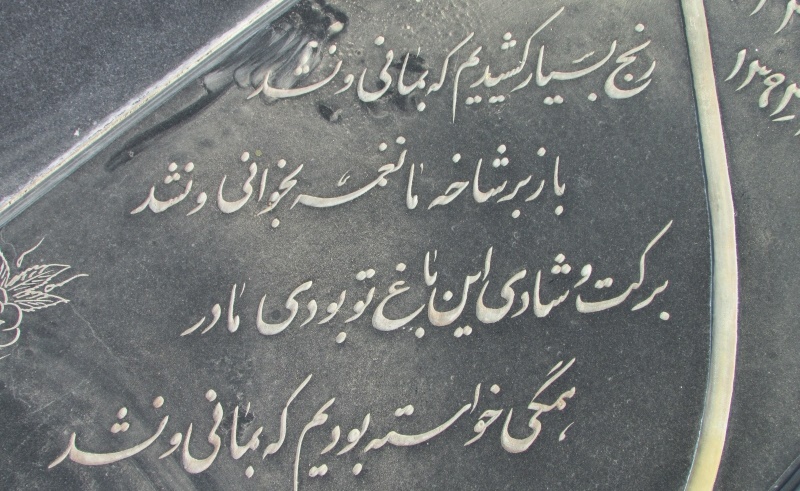 رنج بسیار کشیدیم که بمانی و نشد
باز بر شاخه ما نغمه بخوانی و نشد
برکت و شادی این باغ تو بودی مادر
همگی خواسته بودیم که بمانی و نشد